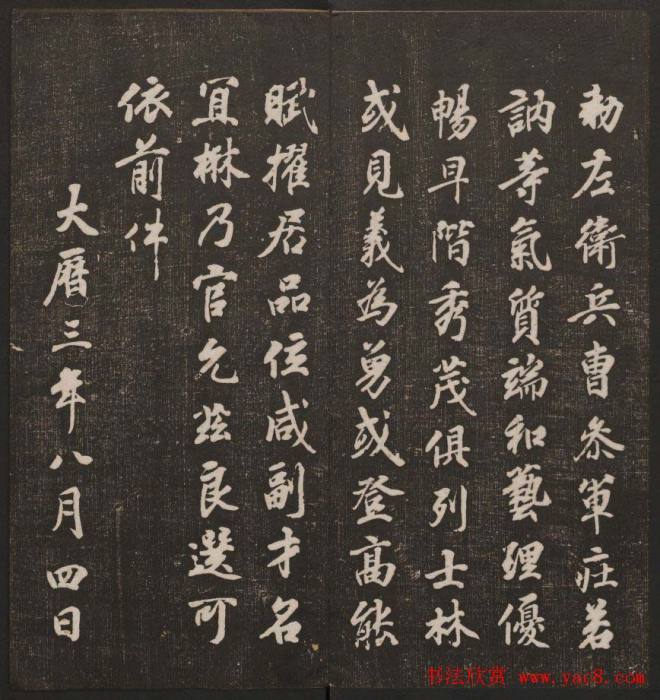 勑左衛兵曹叅軍莊若
訥等氣質端和藝理優
暢早階秀茂俱列士林
或見義為勇或登高能
賦擢居品位咸副才名
宜楙乃官允兹良選可
依前件
大曆三年八月四日
书法欣赏 www.yac8.com